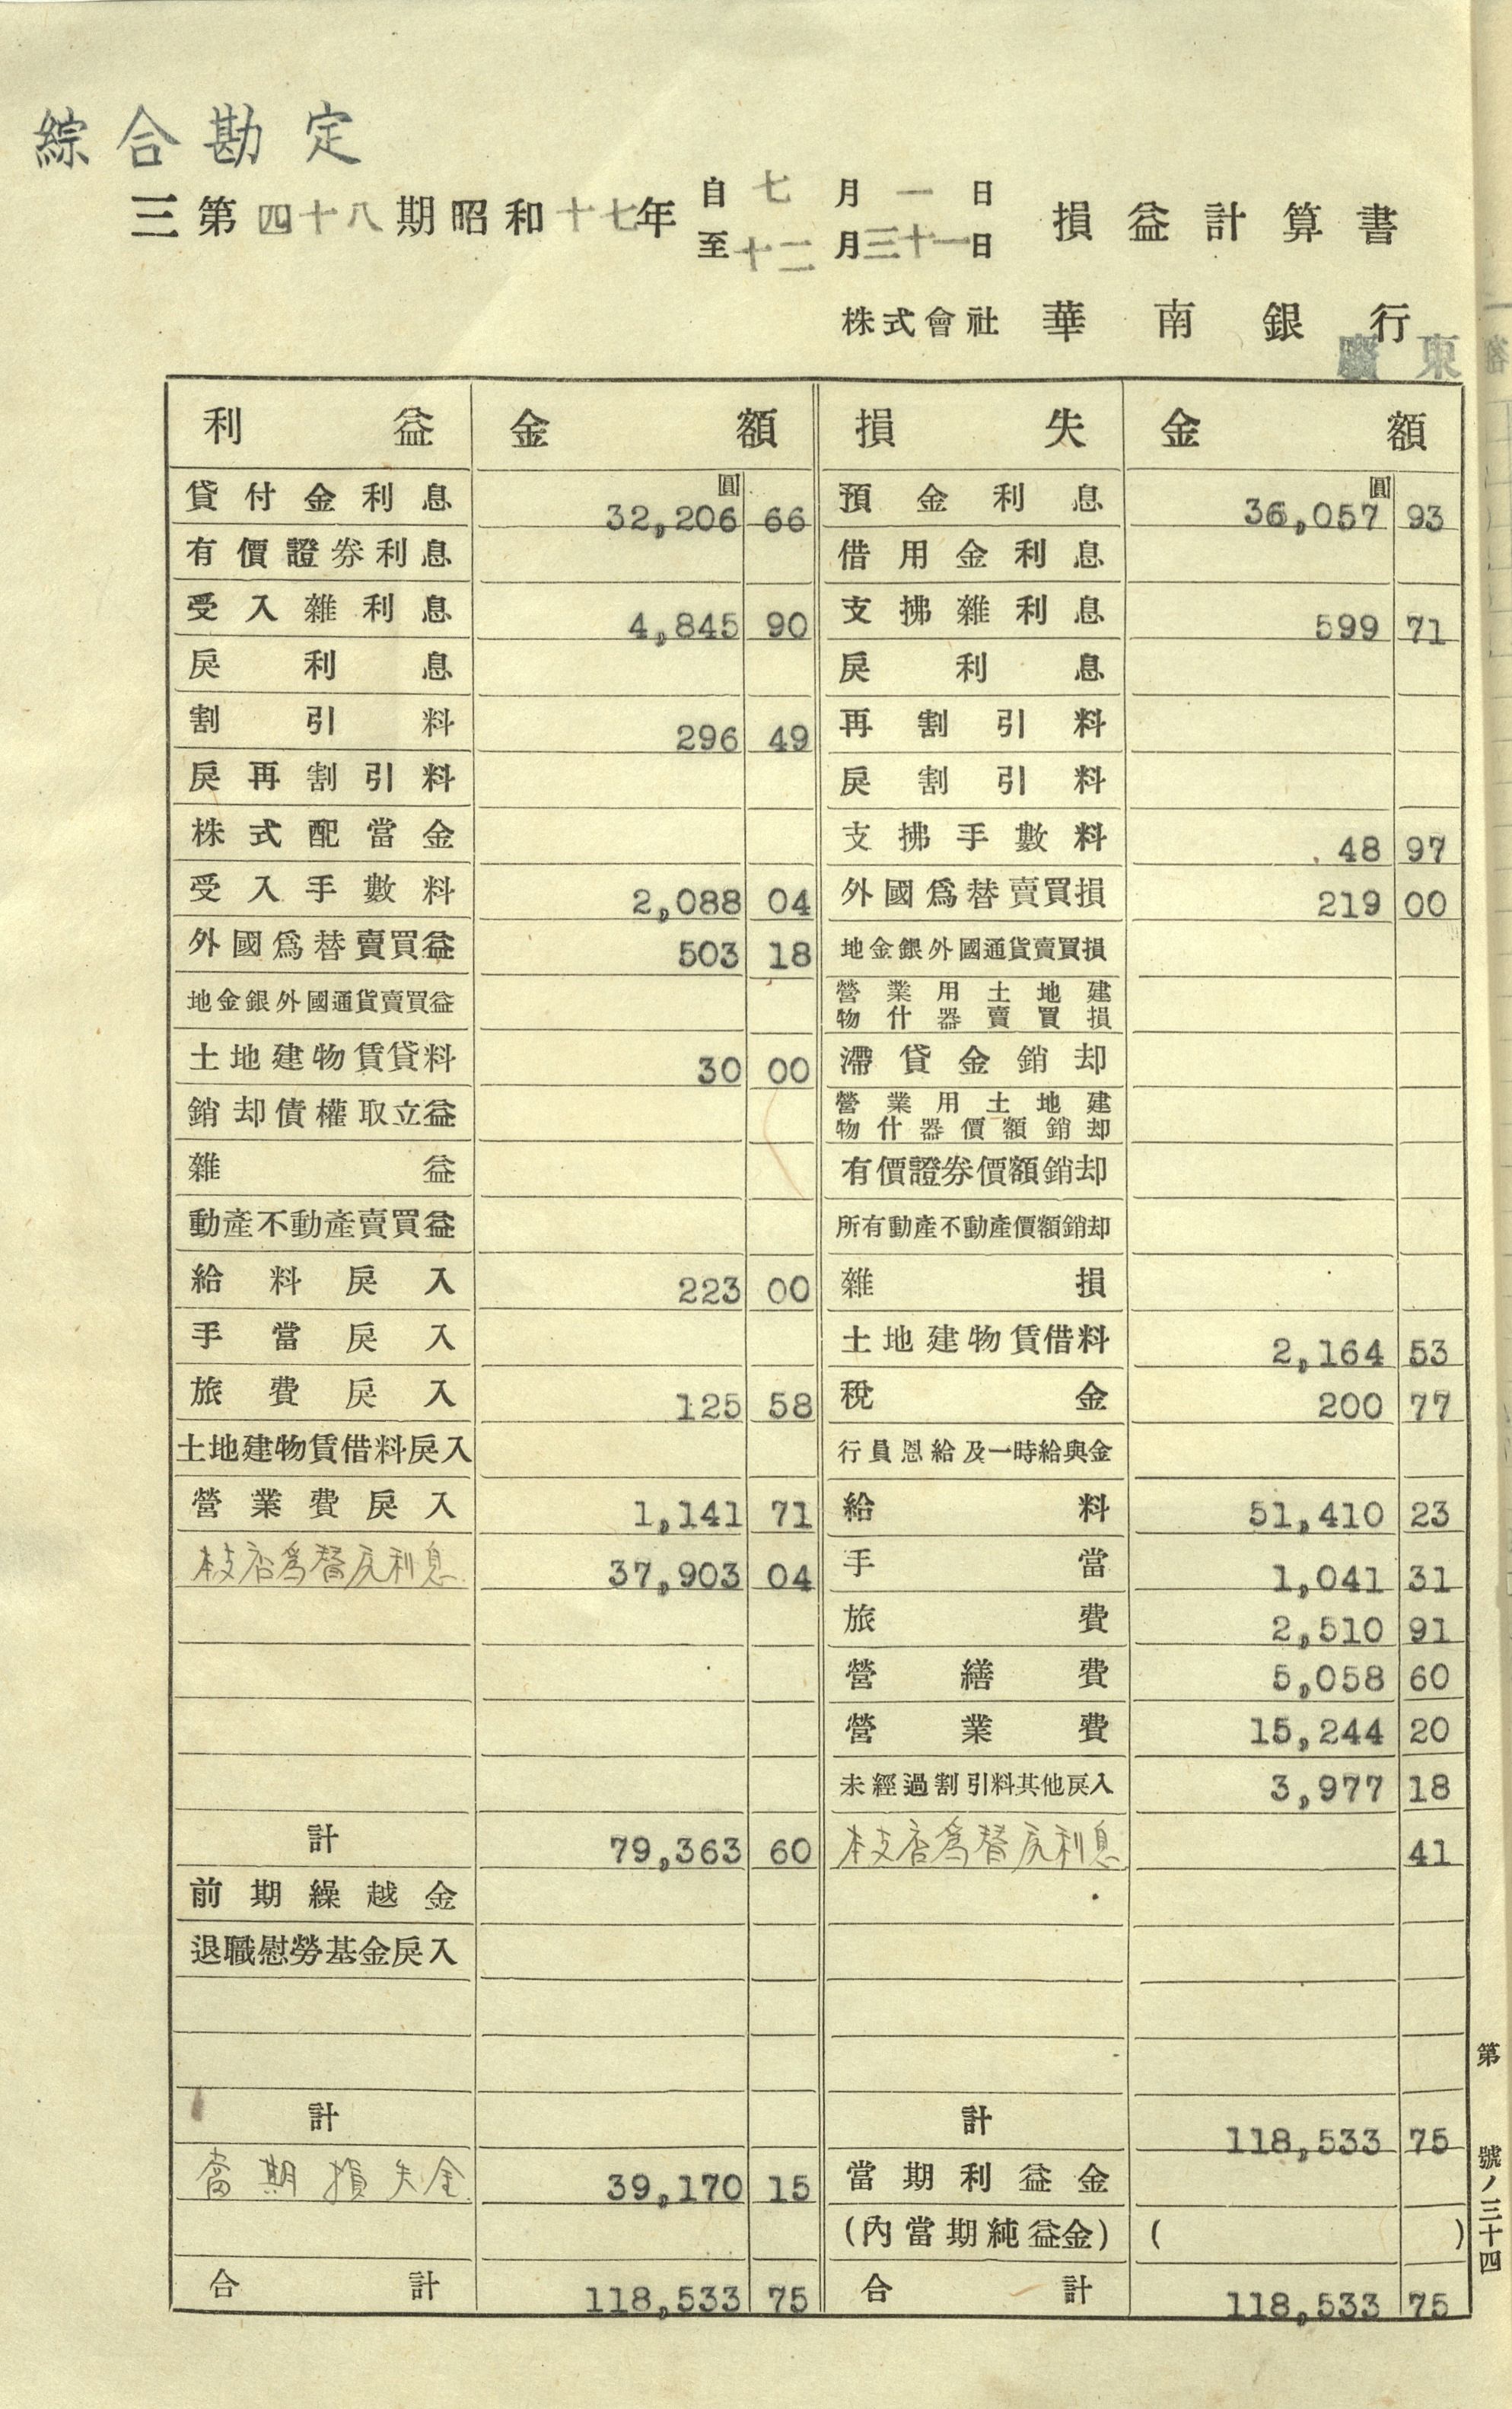 綜合勘定
三第四十八期昭和十七年 自七月一日 至十二月三十一日 損益計算書
株式會社 華南銀行
廣東
利益 金額 損失 金額
貸付金利息 圓 32,206 66 預金利息 圓 36,057 93
有價證券利息 借用金利息
受入雜利息 4,845 90 支拂雜利息 599 71
戾利息 戾利息
割引料 296 49 再割引料
戾再割引料 戾割引料
株式配當金 支拂手數料 48 97
受入手數料 2,088 04 外國爲替賣買損 219 00
外國爲替賣買益 503 18 地金銀外國通貨賣買損
地金銀外國通貨賣買益 營業用土地建物什器賣買損
土地建物賃貸料 30 00 滯貸金銷却
銷却債權取立益 營業用土地建物什器價額銷却
雜益 有價證券價額銷却
動產不動產賣買益 所有動產不動產價額銷却
給料戾入 223 00 雜損
手當戾入 土地建物賃借料 2,164 53
旅費戾入 125 58 稅金 200 77
土地建物賃借料戾入 行員恩給及一時給與金
營業費戾入 1,141 71 給料 51,410 23
本支店爲替尻利息 37,903 04 手當 1,041 31
旅費 2,510 91
營繕費 5,058 60
營業費 15,244 20
未經過割引料其他戾入 3,977 18
計 79,363 60 本支店爲替尻利息 41
前期繰越金
退職慰勞基金戾入
計 計 118,533 75
當期損失金 39,170 15 當期利益金
(內當期純益金) ( )
合計 118,533 75 合計 118,533 75
第 號ノ三十四